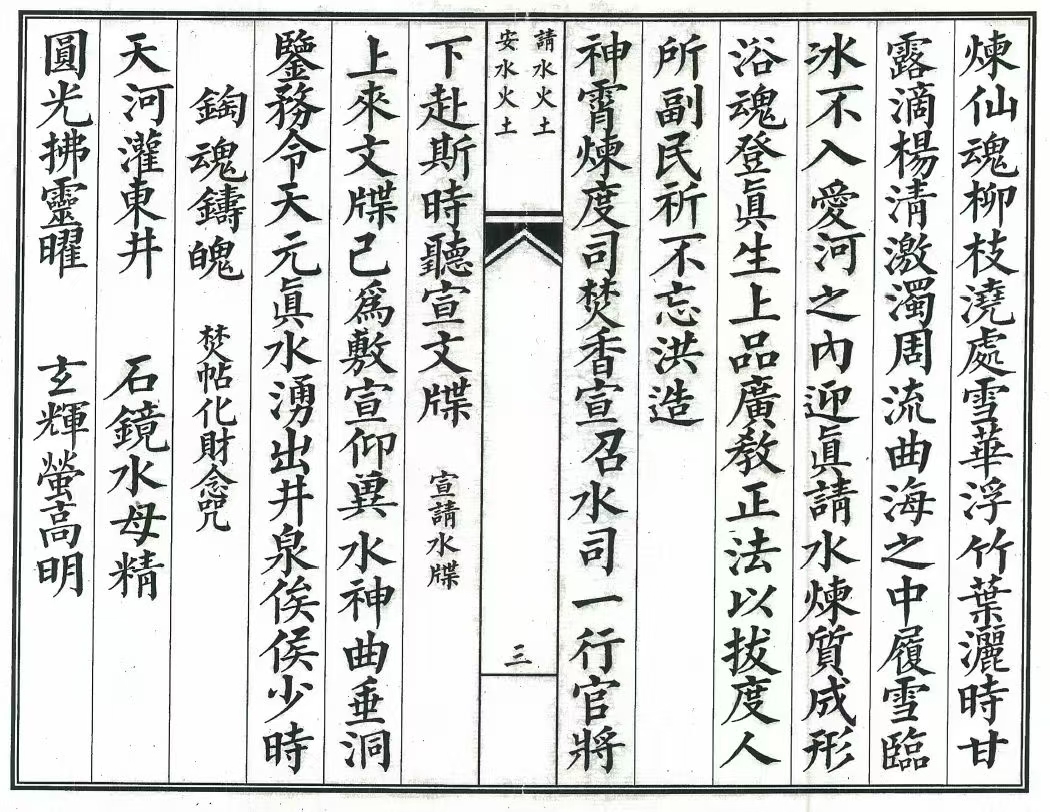 煉仙魂柳枝澆處雪華浮竹葉灑時甘
露滴楊清激濁周流曲海之中履雪臨
冰不入愛河之內迎眞請水煉質成形
浴魂登眞生上品廣教正法以拔度人
所副民祈不忘洪造
神霄煉度司焚香宣召水司一行官將
請水火土
安水火土
三
下赴斯時聽宣文牒 宣請水牒
上來文牒己爲敷宣仰兾水神曲垂洞
鑒務令天元眞水湧出井泉俟侯少時
鋾魂鑄魄 焚帖化財念咒
天河灌東井 石鏡水母精
圓光拂靈曜 玄輝螢高明